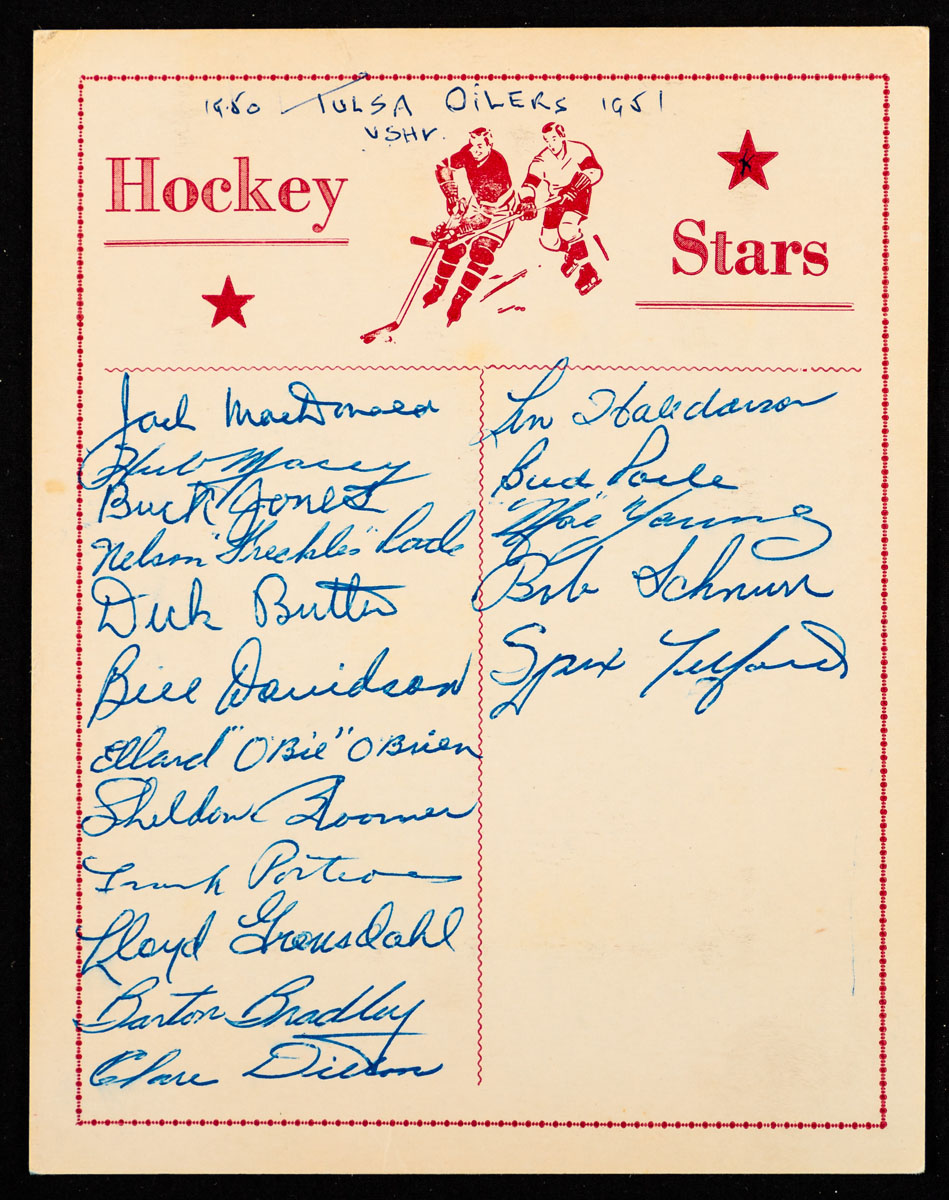 1950 TULSA OILERS 1951
USHL
Hockey
Stars
Jack MacDonald
Hub Macey
Buck Jones
Nelson "Freckles"
Dick Butler
Bill Davidson
Ellard "OBie" O'Brien
Sheldon Bloomer
Frank Porteous
Lloyd Gronsdahl
Barton Bradley
Clare
Len Haldorson
Bud Poile
"Moe" Young
Bob Schnurr
Spex Telford